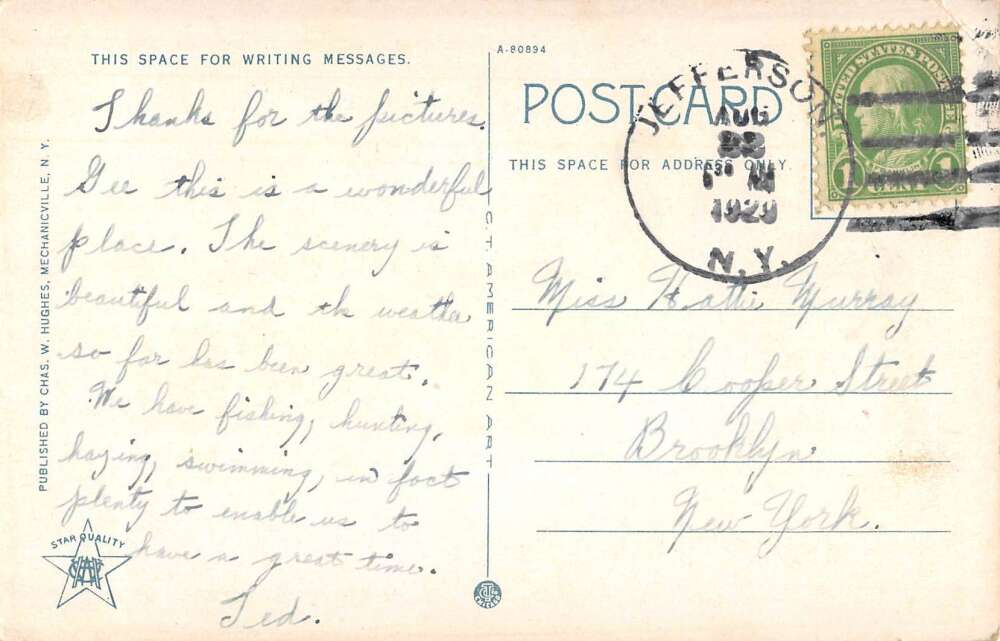 THIS SPACE FOR WRITING MESSAGES.
Thanks for the pictures.
Gee this is a wonderful
place. The scenery is
beautiful and the weather
so far has been great.
We have fishing, hunting,
haying, swimming, in fact
plenty to enable us to
have a great time.
Ted.
PUBLISHED BY CHAS. W. HUGHES, MECHANICVILLE, N. Y.
STAR QUALITY
C. T. AMERICAN ART
A-80894
POST CARD
THIS SPACE FOR ADDRESS ONLY.
JEFFERSON
AUG
1929
N.Y.
UNITED STATES POSTAGE
1 1
Miss Hattie Murray
174 Cooper Street
Brooklyn
New York.